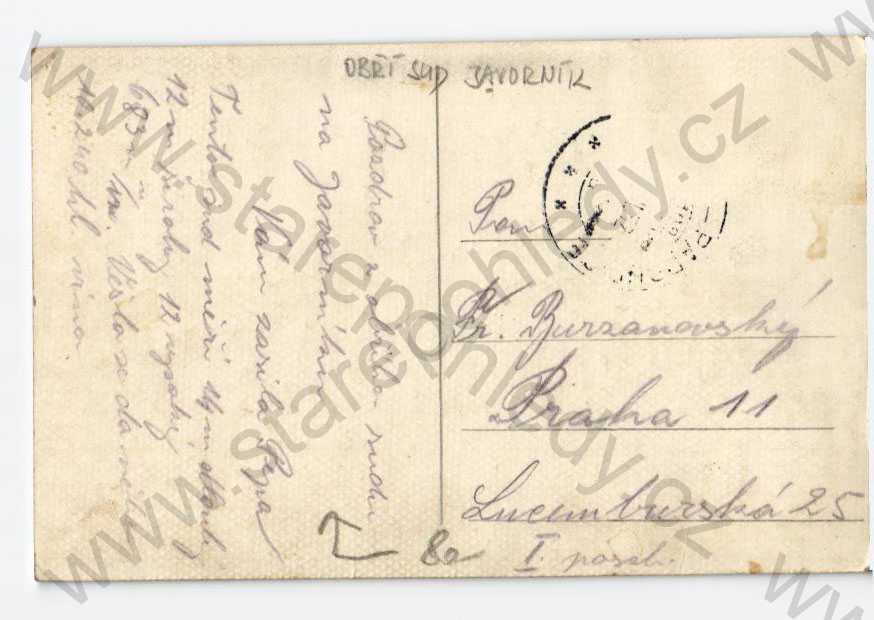 OBŘÍ SUD JAVORNÍK
Pozdrav z obřího sudu
na Javorníku
Vám zasílá Pepa
Tento sud měří 14 m
12 m široký 12 vysoký
683 m Vešlo se do
hl vína
Pan
Fr. Burzanovský
Praha 11
Lucemburská 25
I. posch.
80
www.starepohledy.cz